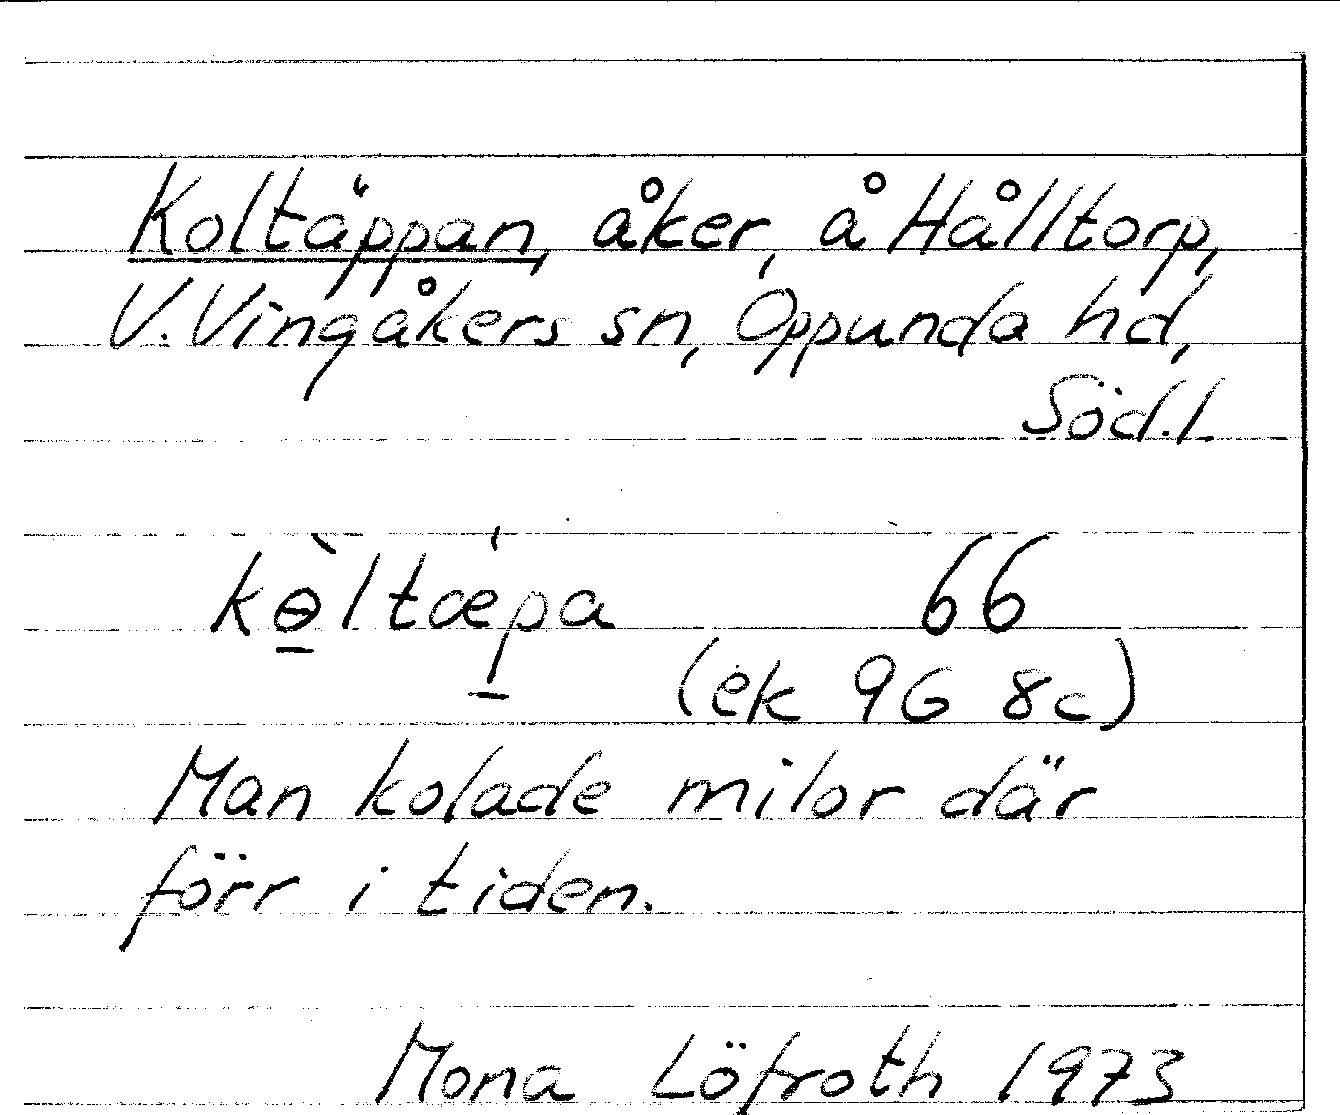 Koltäppan, åker, å Hålltorp,
V. Vingåkers sn, Oppunda hd,
Söd.l.
kɵ̠̀ltæp̠a 66
(ek 9G 8c)
Man kolade milor där
förr i tiden.
Mona Löfroth 1973